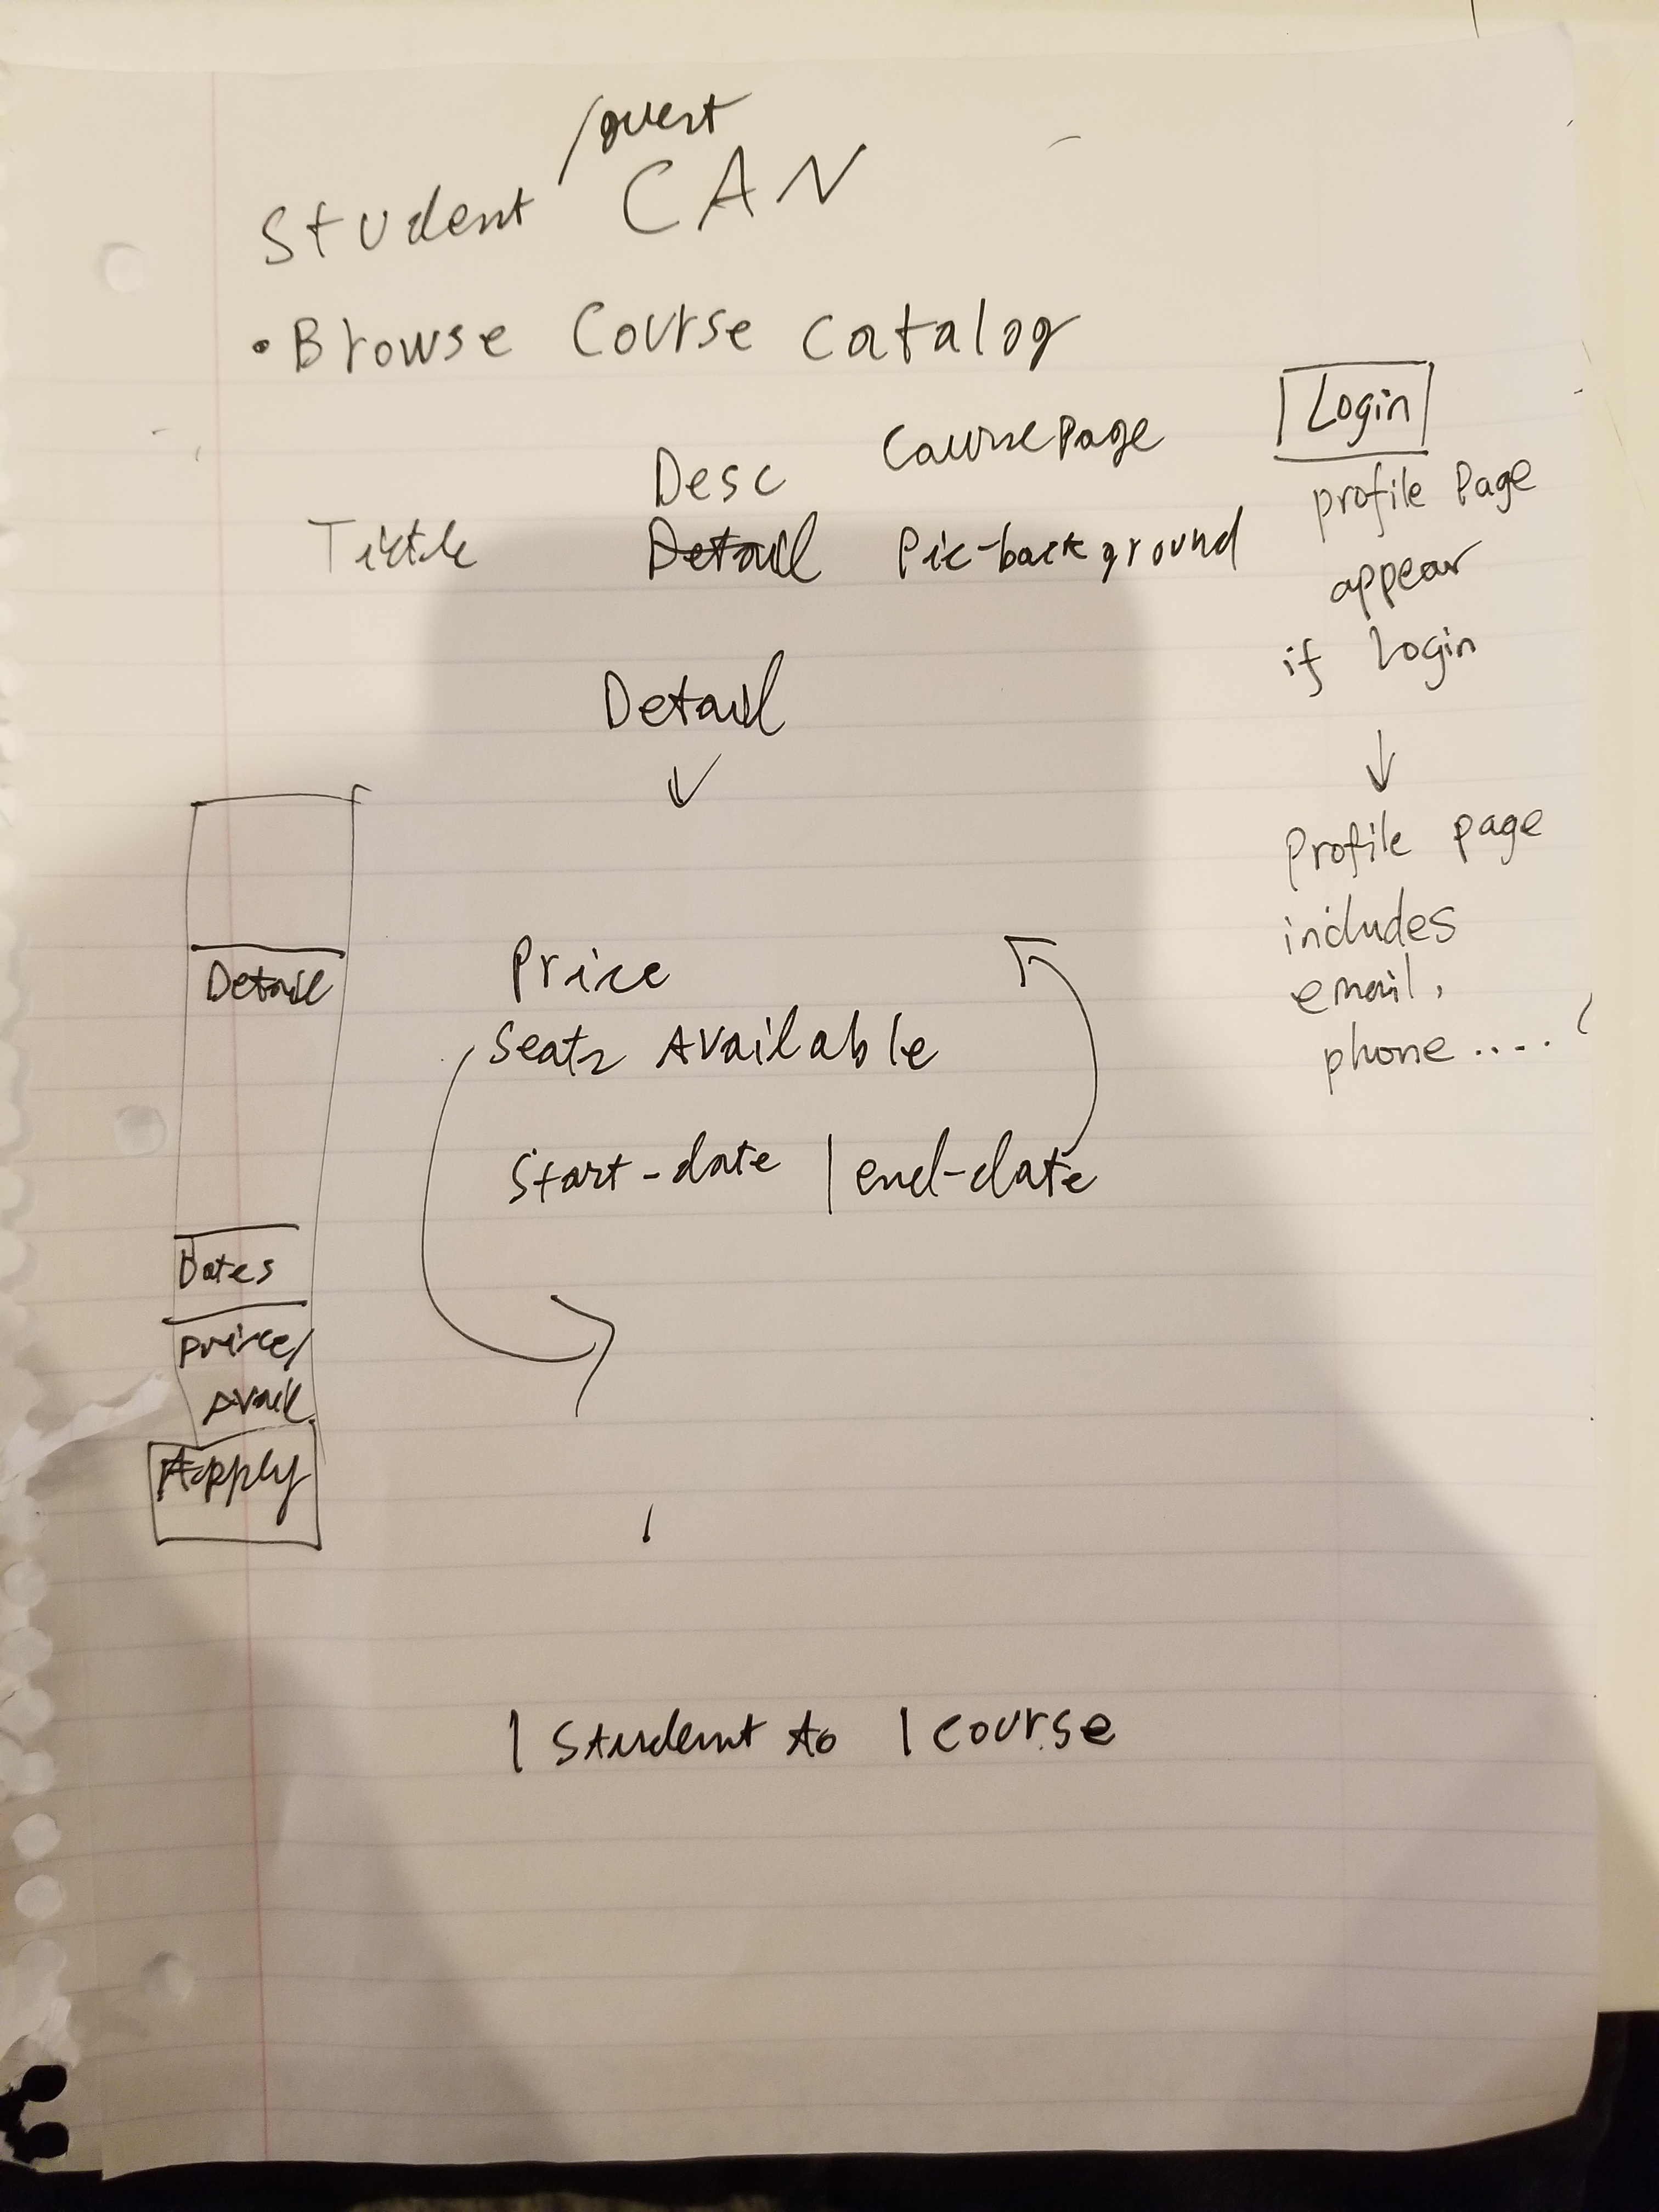 /guest
Student CAN
• Browse Course catalog
Login
CoursePage
Desc
profile Page
Detail Pic-background
appear
if Login
Detail
Profile page
includes
email,
phone ....
Detail
Price
Seats Available
Start-date | end-date
Dates
Price/
Avail.
Apply
1 Student to 1 course